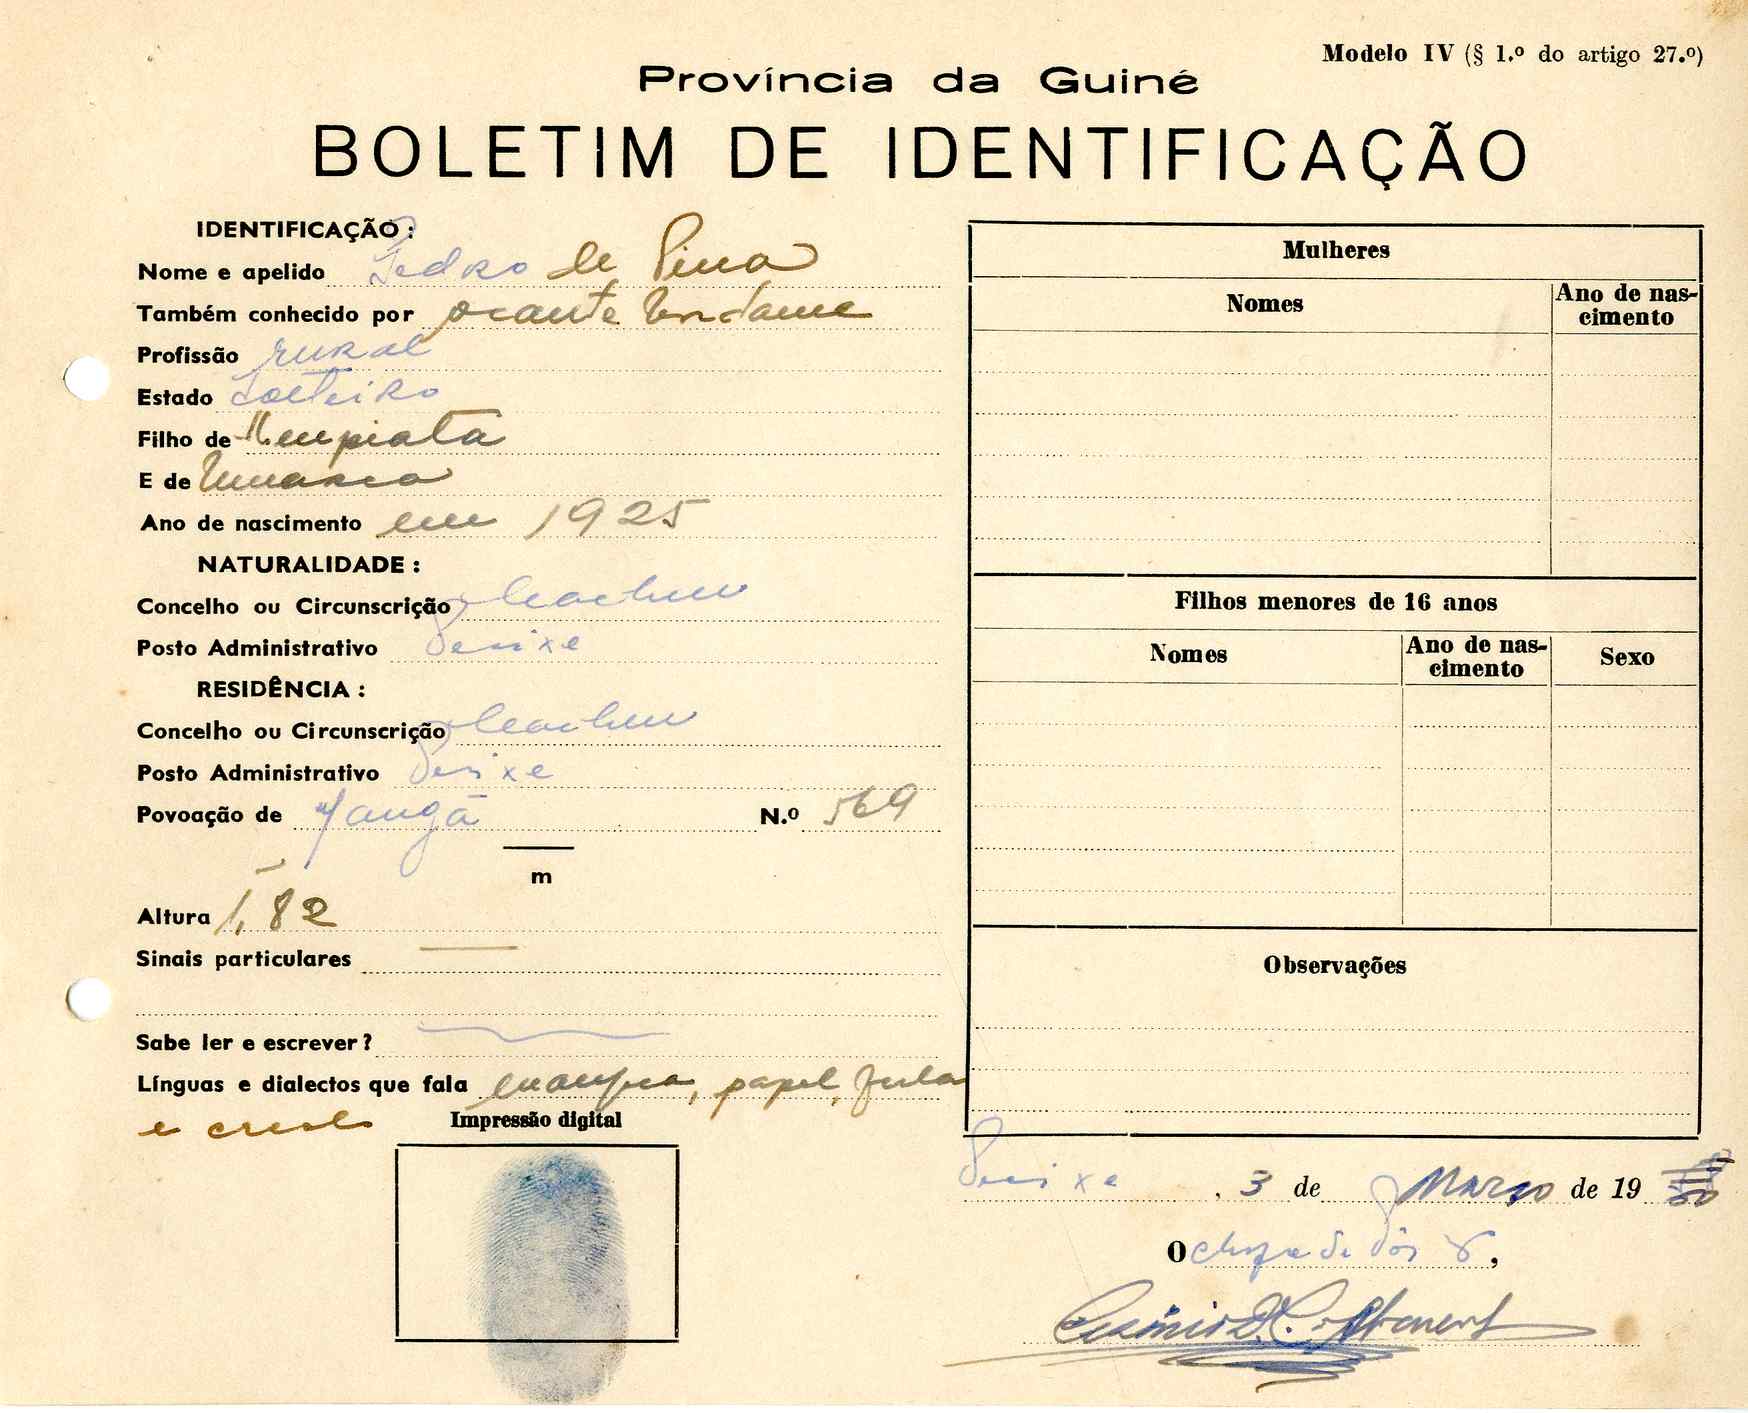 Modelo IV (§ 1.º do artigo 27.º)
Província da Guiné
BOLETIM DE IDENTIFICAÇÃO
IDENTIFICAÇÃO:
Nome e apelido Pedro de Pina
Também conhecido por ocante
Profissão rural
Estado solteiro
Filho de
E de
Ano de nascimento em 1925
NATURALIDADE:
Concelho ou Circunscrição Cacheu
Posto Administrativo Pexixe
RESIDÊNCIA:
Concelho ou Circunscrição Cacheu
Posto Administrativo Pexixe
Povoação de N.º 569
m
Altura 1,82
Sinais particulares
Sabe ler e escrever?
Línguas e dialectos que fala papel, fula
e creolo
Impressão digital
Mulheres
Nomes
Ano de nas-
cimento
Filhos menores de 16 anos
Nomes
Ano de nas-
cimento
Sexo
Observações
Pexixe, 3 de Março de 19
O chefe de